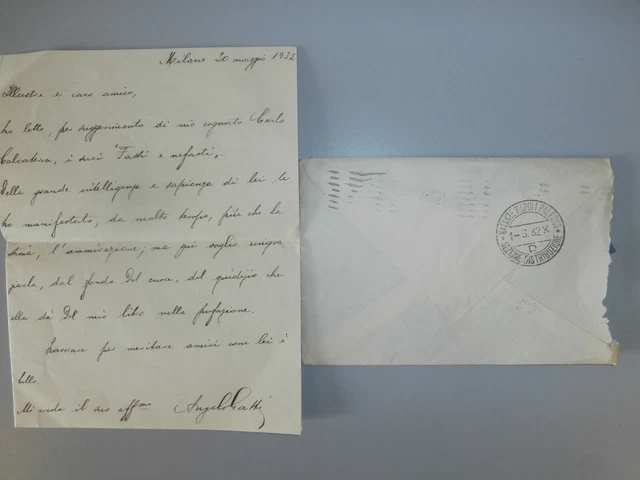 Milano 20 maggio 1932
Illustre e caro amico,
ho letto, per suggerimento di mio cognato Carlo
Calcaterra, i suoi "Fasti e nefasti".
Della grande intelligenza e sapienza di lei le
ho manifestato, da molto tempo, più che la
stima, l'ammirazione; ma qui voglio
, dal fondo del cuore, del giudizio che
ella dà del mio libro nella prefazione.
Lavorare per meritare amici come lei è
bello.
Mi creda il suo affmo Angelo Gatti
1-6.32.X
D
DISTRIBUZIONE